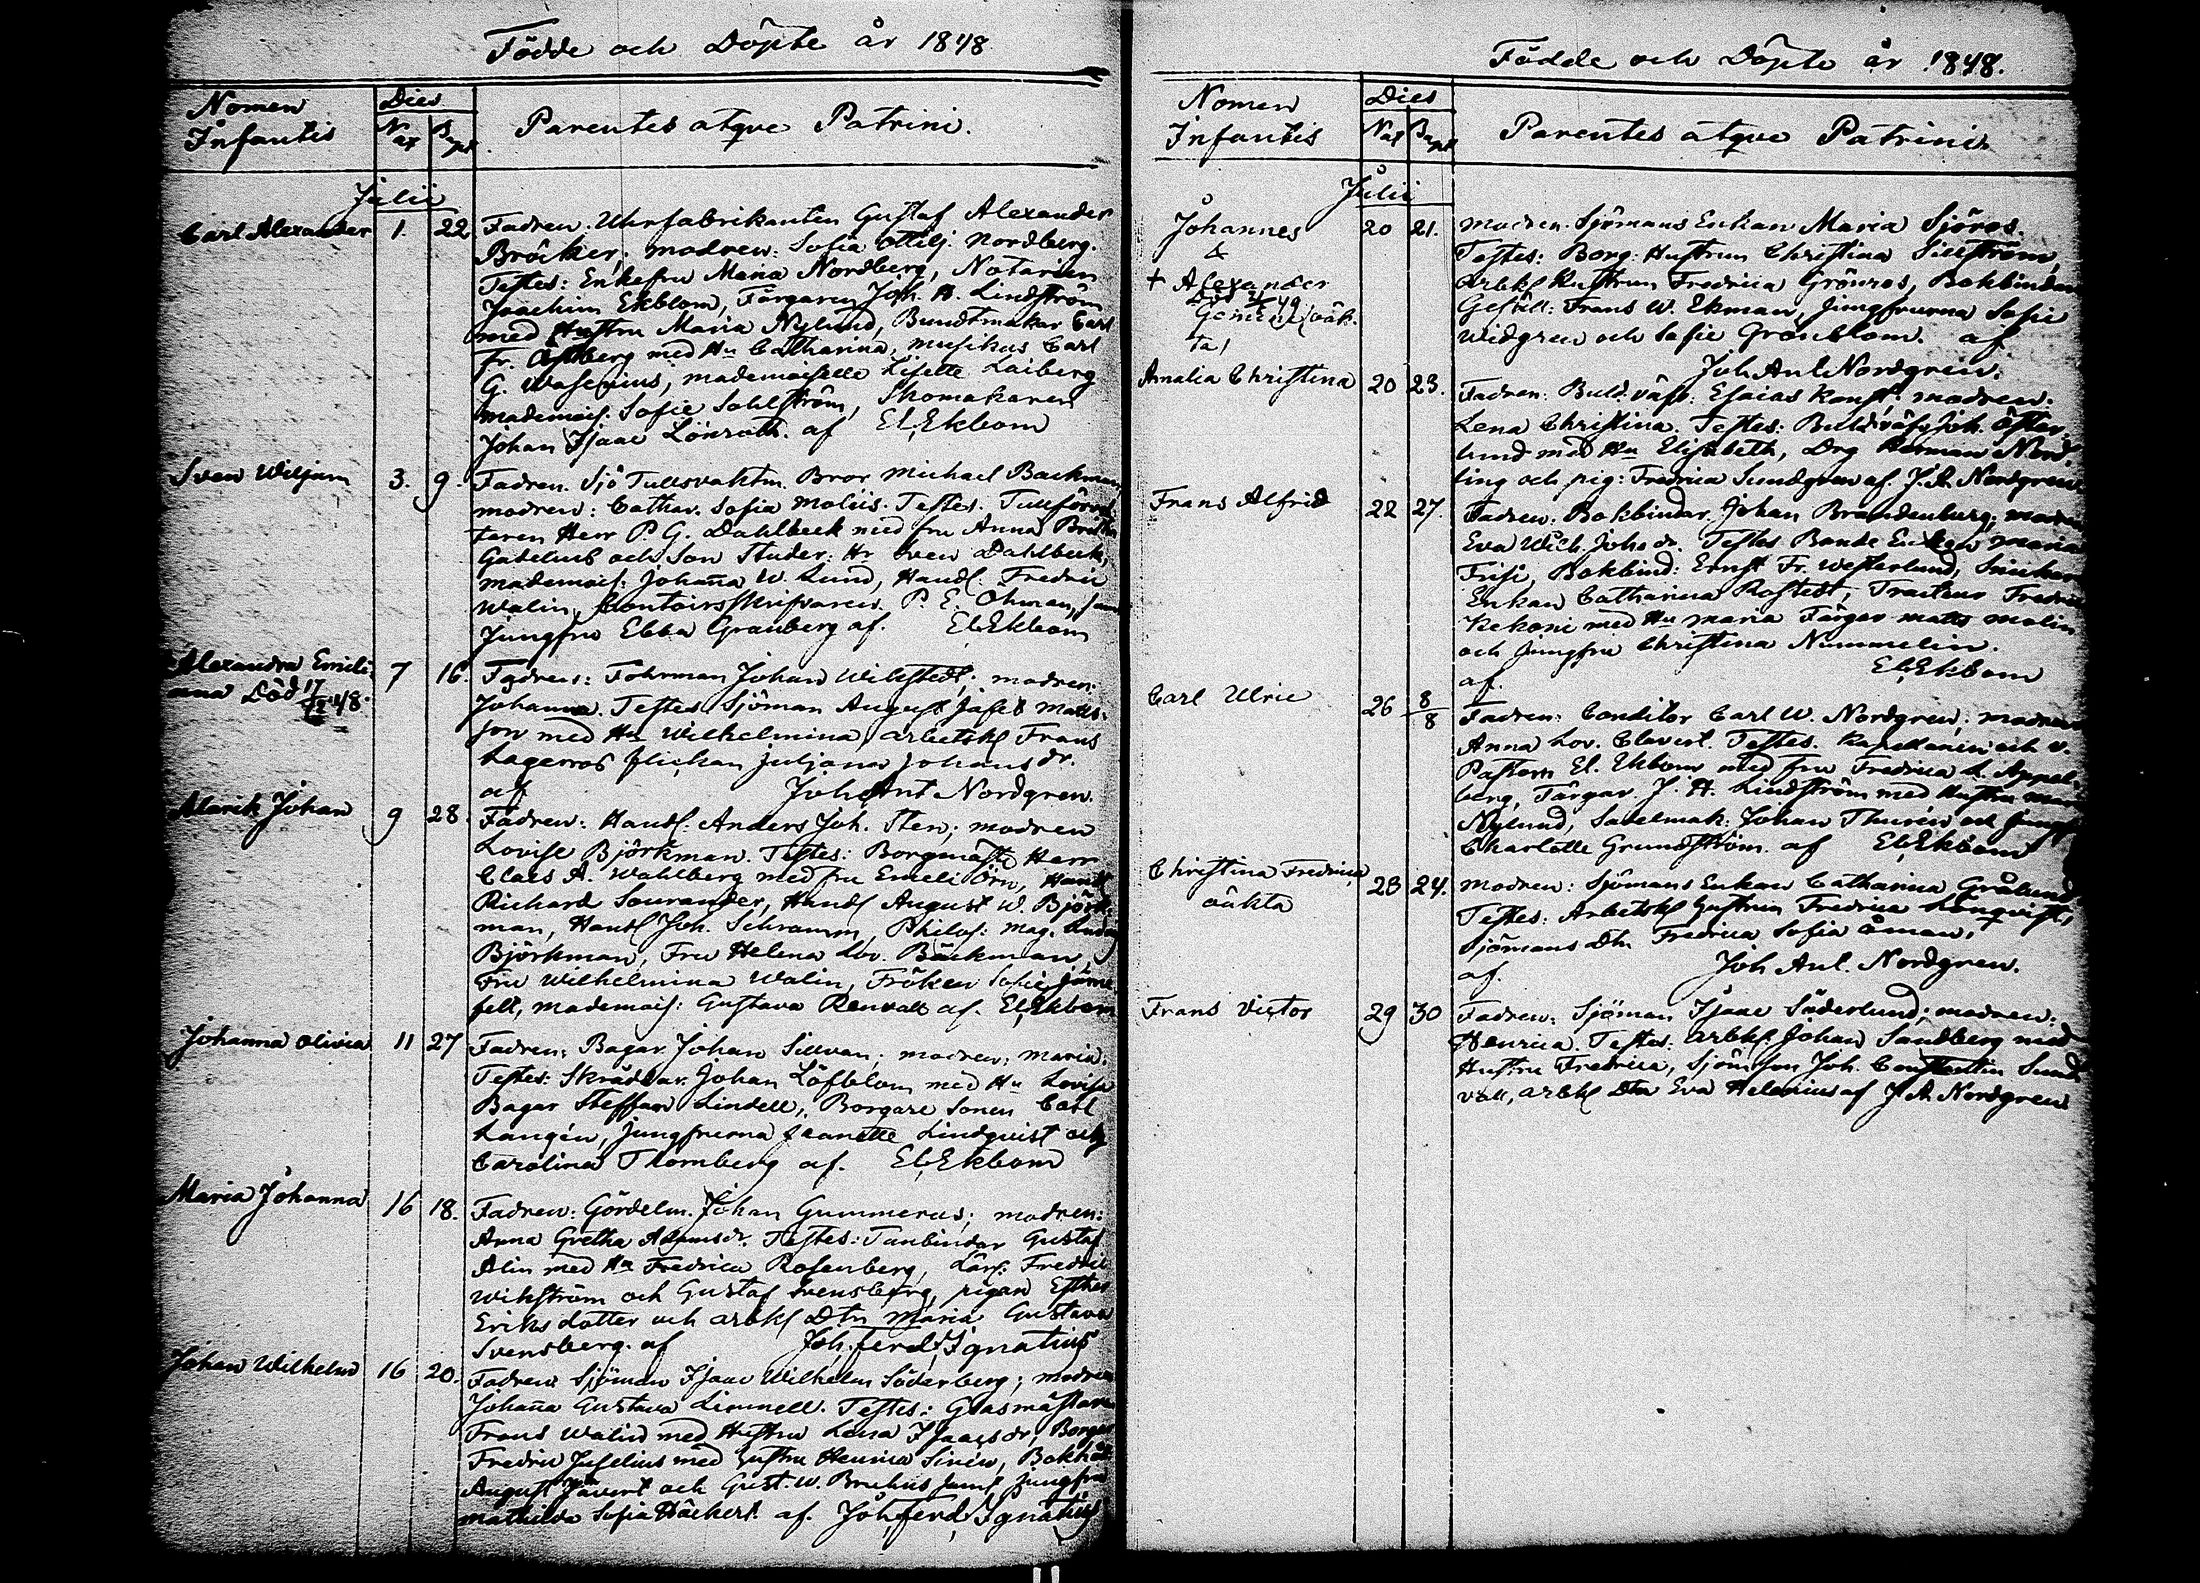 Födde och Döpte år 1848
Nomen Infantis
Dies
Nat Bapt
Parentes atqve Patrini.
Julii
Carl Alexander 1. 22 Fadren: Uhrfabrikanten Gustaf Alexander
Bröcker; modren: Sofia Ottilj. Nordberg.
Testes: Enkefru Maria Nordberg, Notarien
Joachim Ekblom, Färgaren Joh. H. Lindström
med Hustru Maria Nylund, Bundtmakar Carl
Fr. Östberg med Hu Catharina, musikus Carl
G. Wasenius, mademoiselle Lisette Laiberg
mademois. Sofie Sohlström, Skomakaren
Johan Isaac Lönroth. af El. Ekbom
Sven Wiljam 3. 9. Fadren. Sjö Tullsvaktm. Bror Michael Backman,
modren: Cathar. Sofia Moliis. Testes. Tullförval
taren Herr P. G. Dahlbeck med fru Anna
och Son Studer: Hr Sven Dahlbeck,
mademois: Johanna W. Lund, Handl. Fredric
Walin, Contoirsskrifvaren P. E. Öhman, samt
Jungfru Ebba Granberg af. El. Ekbom
Alexandra Emili-
ana Död 17/12 48. 7 16. Fadren: Fohrman Johan Wikstedt; modren:
Johanna. Testes Sjöman August Jafet Matts-
son med Hu Wilhelmina, arbetsk Frans
Lagerros flickan Juljana Johans dr.
af Joh Ant Nordgren.
Alarik Johan 9 28. Fadren: Handl. Anders Joh. Sten; modren
Lovise Björkman. Testes: Borgmäst Herr
Claes A. Wahlberg med fru Emeli Örn, Handl
Richard Sourander, Handl August W. Björk-
man, Handl Joh. Schramm, Philos: mag.
Björkman, Fru Helena Lov. Bäckman,
Fru Wilhelmina Walin, Fröken Sofie Järne
felt, mademois: Gustava Renvall af. El. Ekbom
Johanna Olivia 11 27 Fadren: Bagar Johan Sillvan; modren: Maria.
Testes: Skräddar. Johan Löfblom med Hu Lovisa
Bagar Steffan Lindell, Borgare Sonen Carl
Langén, Jungfruerna Jeanette Lindqvist och
Carolina Thornberg af. El. Ekbom
Maria Johanna 16 18. Fadren: Gördelm. Johan Gummerus; modren:
Anna Gretha Adamsdr. Testes: Tunbindar Gustaf
Alin med Hu Fredrica Rosenberg, Lärl: Fredric
Wikström och Gustaf Svensberg, pigan Esther
Eriks dotter och arbk Dtn Maria Gustava
Svensberg. af Joh. Ferd. Ignatius
Johan Wilhelm 16 20. Fadren Sjöman Isaac Wilhelm Söderberg; modren
Johanna Gustava Limnell. Testes: Glasmästaren
Frans Walin med Hustru Lena Isaacsdr, Borgar
Fredric Juselius med Hustru Henrica Sinén, Bokhål
August Jävert och Gust. W. Bruhns samt jungfru
Mathilda Sofia Häckert af. Joh. Ferd. Ignatius
Födde och Döpte år 1848.
Nomen Infantis
Dies
Nat Bapt
Parentes atqve Patrini
Julii
Johannes 20 21. modren: Sjömans Enkan Maria Sjöros.
& Testes: Borg: Hustrun Christina Sillström,
+ Alexander arbk Hustrun Fredrica Grönros, Bokbindar
Död 49 Gesäll: Frans W. Ekman, Jungfruerna Sofie
Gemini /oäk-
ta/ Widgren och Sofie Grönblom. af
Joh. Ant Nordgren.
Amalia Christina 20 23. Fadren: Buld. väfv. Esaias modren:
Lena Christina. Testes: Buldväfv. Joh. Öster
lund med Hu Elisabeth, Drg Herman Nord-
ling och pig: Fredrica Sundgren af. J. A. Nordgren.
Frans Alfrid 22 27. Fadren: Bokbindar. Johan Brandenburg; modren
Eva Wilh. Johs dr. Testes Bonde Enkan Maria
Frisi, Bokbind: Ernst Fr. Westerlund, Snickar
Enkan Catharina Rostedt, Tracteur Fredric
Kekoni med Hu Maria Färgar Matts Malin
och jungfru Christina Nummelin.
af. El. Ekbom
Carl Ulric 26 8/8 Fadren: Conditor Carl W. Nordgren; modren
Anna Lov. Testes. Kapellanen och v.
Pastorn El. Ekbom med fru Fredrica L. Appel-
berg, Färgar. J. H. Lindström med Hustru Maria
Nylund, Sadelmak: Johan Thurén och Jungf
Charlotte Grundström. af El. Ekbom
Christina Fredrica
oäkta 23 24. Modren: Sjömans Enkan Catharina Grålund
Testes: Arbetsk Hustrun Fredrica Lönqvist,
Sjömans Dtn Fredrica Sofia Öman,
af. Joh Ant. Nordgren.
Frans Victor 29 30 Fadren: Sjöman Isaac Söderlund; modren:
Henrica. Testes: arbk: Johan Sandberg med
Hustru Fredrica, Sjöm Son Joh. Constantin Sund
vall, arbk Dtn Eva Helenius af J. A. Nordgren